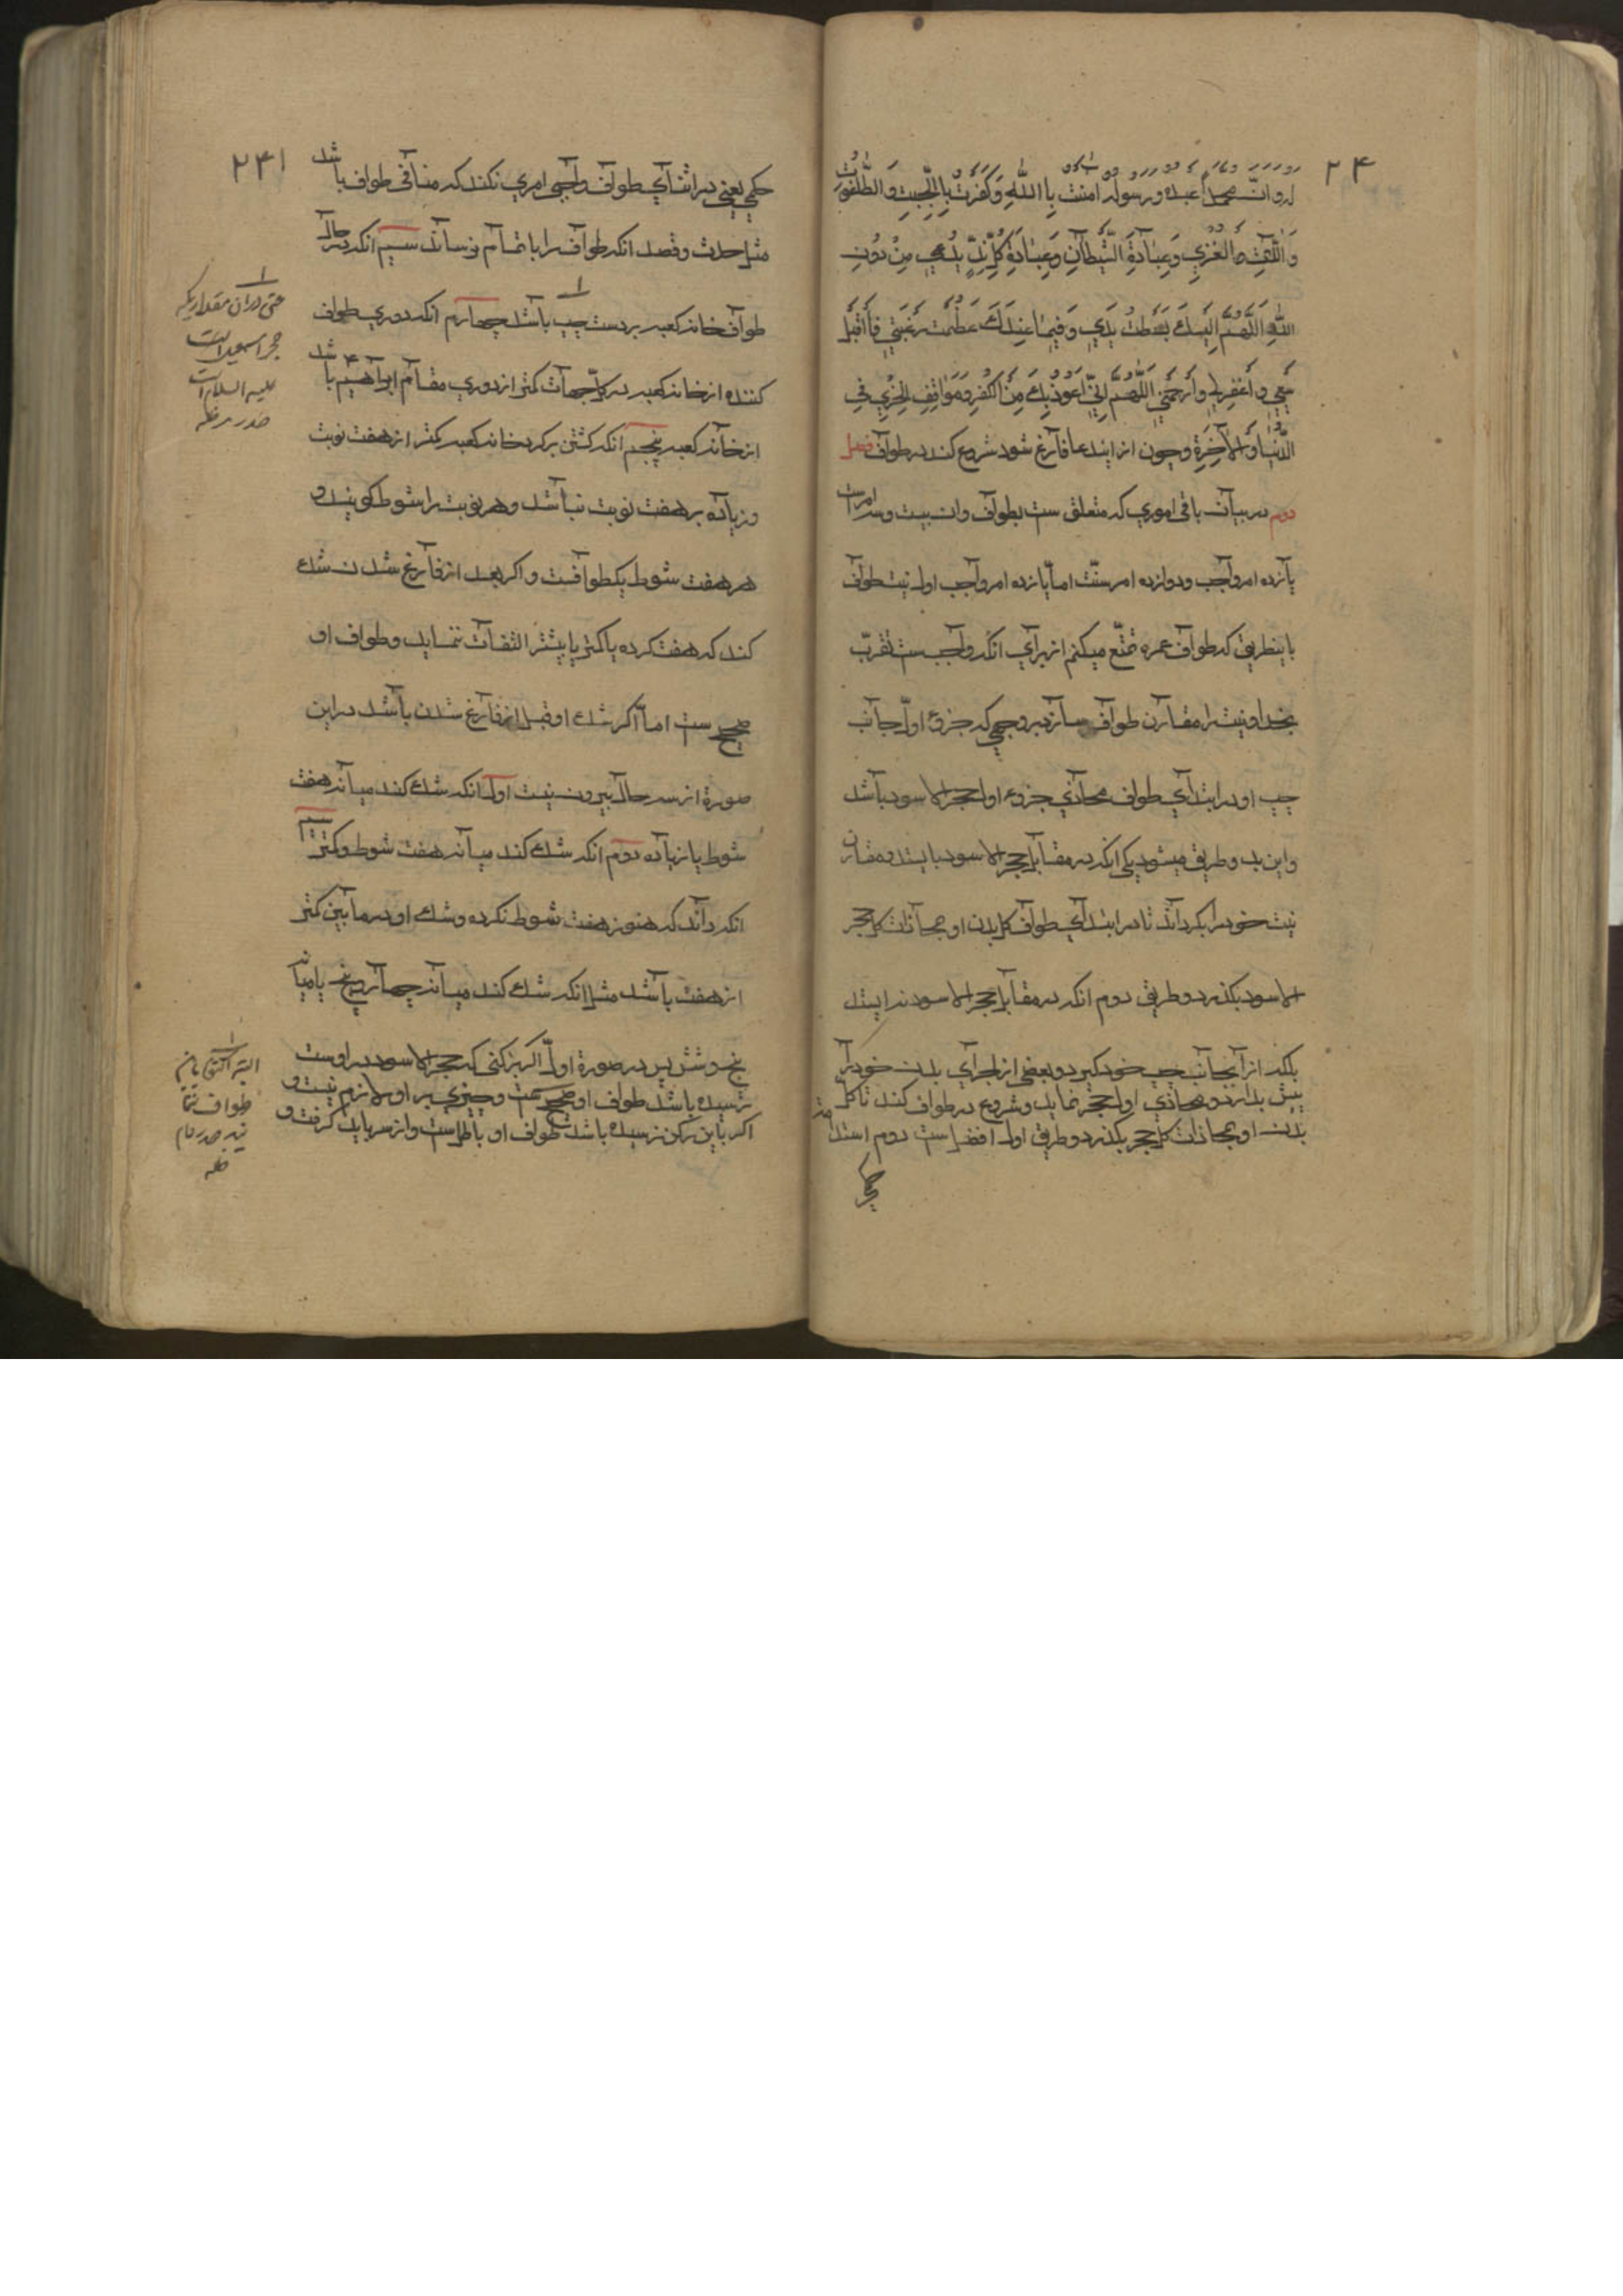 ۲۴
له وان محمدا عبده ورسوله امنت باالله وكفرت باالجبت والطاغوت
واللات والعزي وعبادة الشيطان وعبادة كل ند يدعي من دون
الله اللهم اليك بسطت يدي وفيما عندك عظمت رغبتي فاقبل
سعيي واغفرلي وارحمني اللهم اني اعوذبك من الكفر ومواقف الخزي في
الدنيا والاخرة وچون از ايندعا فارغ شود شروع كند در طواف فصل
دوم در بيان باقي اموري كه متعلق ست بطواف وان بيست وسه امر است
يازده امر واجب ودوازده امر سنت اما يازده امر واجب اول نيت طواف
باينطريق كه طواف عمره تمتع ميكنم از براي انكه واجبست تقرب
بخدا ونيت را مقارن طواف سازد بر وجهي كه جزو اول جانب
چپ او در ابتداي طواف محاذي جزو اول حجر الاسود باشد
واين بدو طريق ميشود يكي انكه در مقابل حجر الاسود بايستد ومقارن
نيت خود را بكرداند تا در ابتداي طواف كل بدن او بمحاذات كل حجر
الاسود بكذرد وطريق دوم انكه در مقابل حجر الاسود نه ايستد
بلكه از انجانب چپ خود كيرد وبعضي از اجزاي بدن خود را
پيش بدارد ومحاذي اول حجر نمايد وشروع در طواف كند تا كل
بدن او بمحاذات كل حجر بكذرد وطريق اول افضل است دوم استدامة
حكم
۲۴۱
حكمي يعني در اثناي طواف واجبي امري نكند كه منافي طواف باشد
مثل حدث وقصد انكه طواف را با تمام نرساند سيم انكه در حال
طواف خانه كعبه بر دست چپ باشد چهارم انكه دوري طواف
كننده از خانه كعبه در كل جهات كمتر از دوري مقام ابراهيم باشد
از خانه كعبه پنجم انكه كشتن بر كرد خانه كعبه كمتر از هفت نوبت
وزياده بر هفت نوبت نباشد وهر نوبت را شوط كويند و
هر هفت شوط يكطوافست واكر بعد از فارغ شدن شك
كند كه هفت كرده يا كمتر يا بيشتر التفات ننمايد وطواف او
صحيح ست اما اكر شك او قبل از فارغ شدن باشد در اين
صورة از سه حال بيرون نيست اول انكه شك كند ميانه هفت
شوط يا زياده دوم انكه شك كند ميانه هفت شوط وكمتر سيم
انكه داند كه هنوز هفت شوط نكرده وشك او در ما بين كمتر
از هفت باشد مثل انكه شك كند ميانه چهار وپنج يا ميان
پنج وشش پس در صورة اول اكر بركني كه حجر الاسود در اوست
رسيده باشد طواف او صحيح ست وچيزي بر او لازم نيست و
اكر باين ركن نرسيده باشد طواف او باطل ست واز سر بايد كرفت و
حتي دران مقدار يكه
حجر اسمعيل است
عليه السلام
صدر مد ظله
طواف